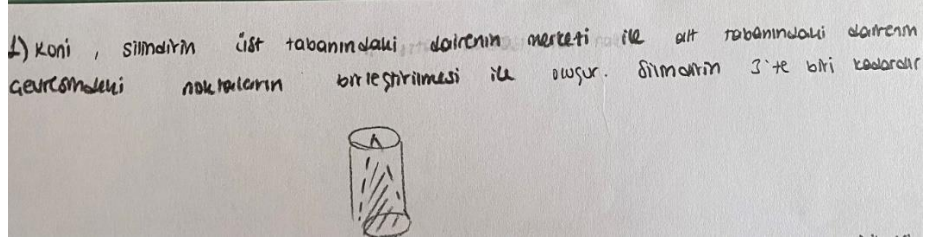 1) Koni, silindirin üst tabanındaki dairenin merkezi ile alt tabanındaki dairenin
çevresindeki noktaların birleştirilmesi ile oluşur. Silindirin 3'te biri kadardır